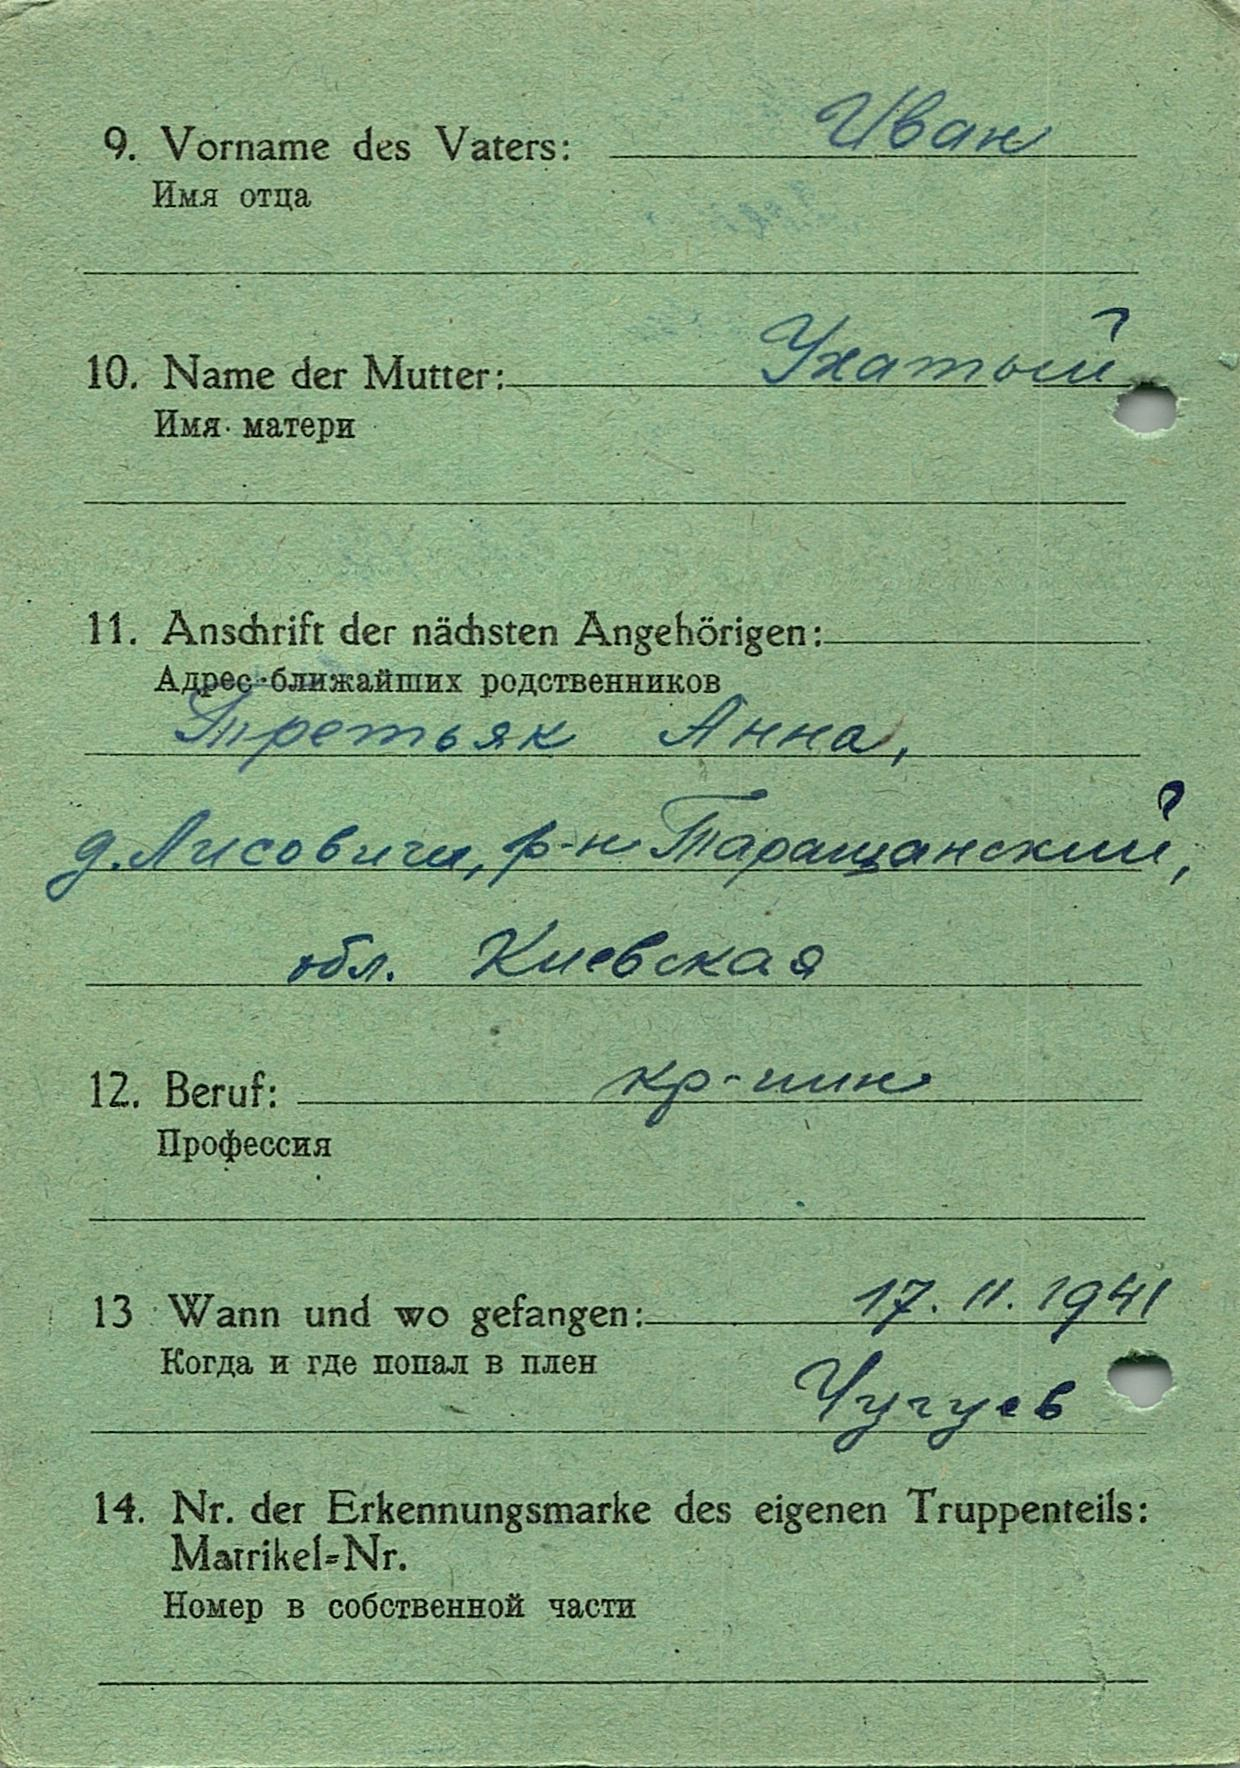 9. Vorname des Vaters: Иван
Имя отца
10. Name der Mutter: Ухатый
Имя матери
11. Anschrift der nächsten Angehörigen:
Адрес ближайших родственников
Третьяк Анна,
д. Лисовичи, р-н Таращанский,
обл. Киевская
12. Beruf: кр-нин
Профессия
13 Wann und wo gefangen: 17. 11. 1941
Когда и где попал в плен
Чугуев
14. Nr. der Erkennungsmarke des eigenen Truppenteils:
Matrikel=Nr.
Номер в собственной части